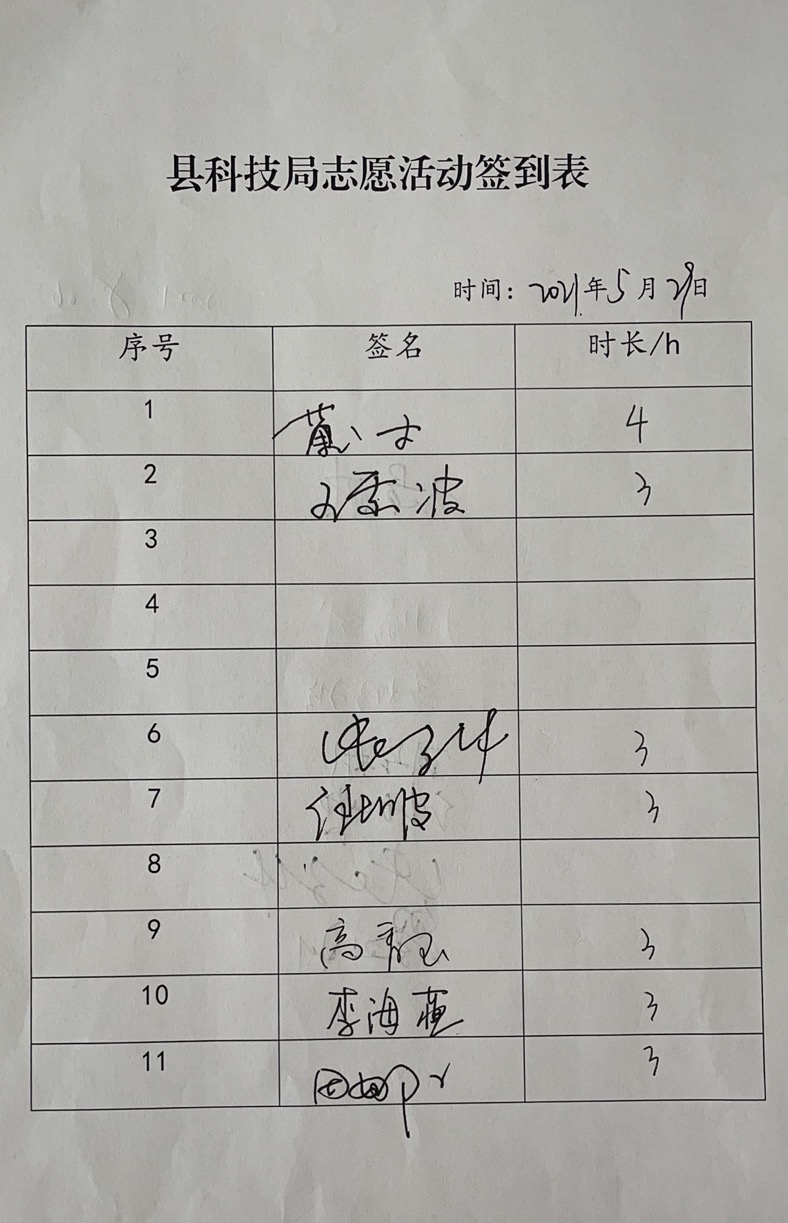 县科技局志愿活动签到表
时间：2021年5月29日
序号 签名 时长/h
1 4
2 波 3
3
4
5
6 3
7 3
8
9 高 3
10 李海燕 3
11 3